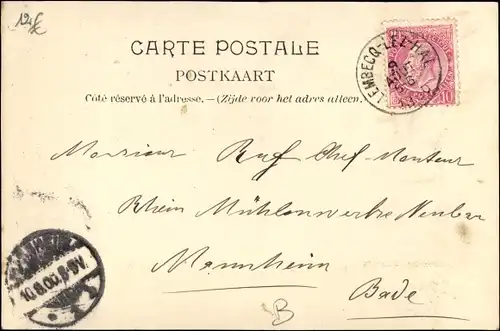 CARTE POSTALE
POSTKAART
Côté réservé à l'adresse. — (Zijde voor het adres alleen.)
LEMBECQ-LEZ-HAL
10
Monsieur Ruf Chef-Monteur
Rhein Mühlenwerke Neubau
Mannheim
Bade
B